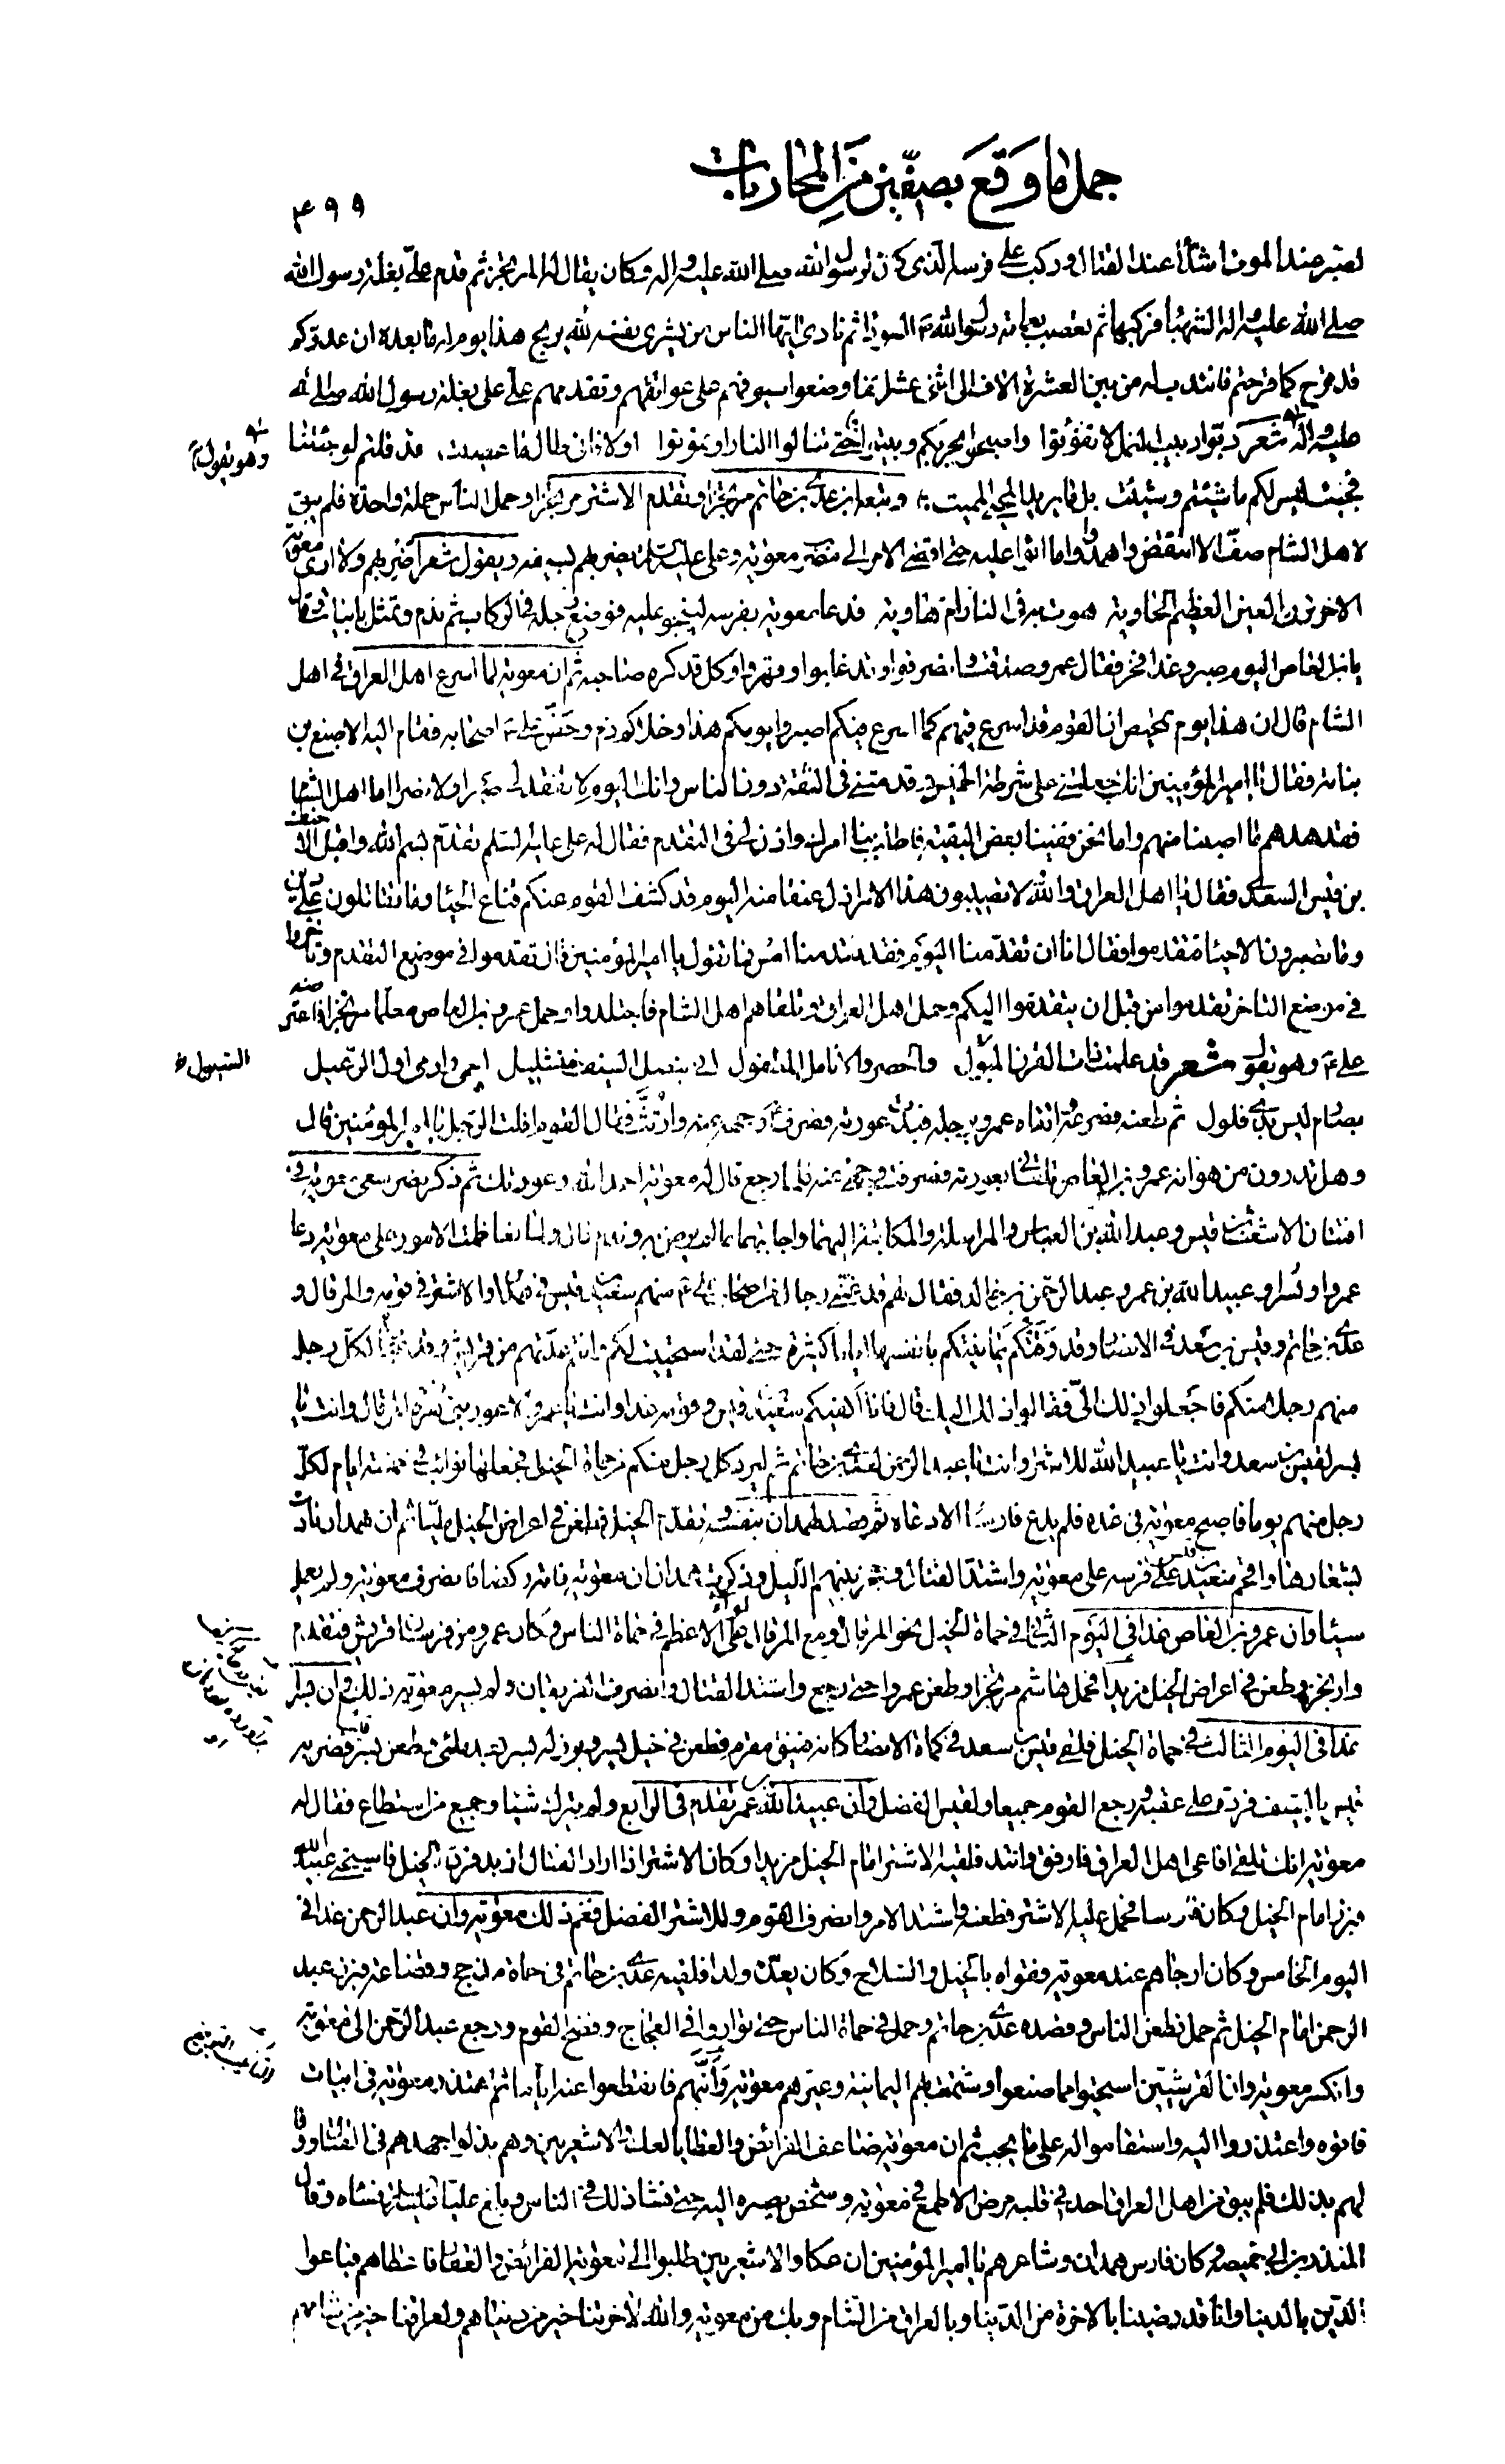 جمل ما وقع بصفين من المحاربات
٤٩٩
عند القتال وركب على فرسه الذي كان لرسول الله صلى الله عليه وآله وكان يقال له المرتجز ثم قدم على بغلة رسول الله
صلى الله عليه وآله الشهباء فركبها ثم تعصب بعمامة رسول الله ص السوداء ثم نادى ايها الناس من يشري نفسه لله يربح هذا يوم له ما بعده ان عدوكم
قد قرح كما قرحتم فانتدب له من بين العشرة الاف الى اثنى عشر الفا وضعوا سيوفهم على عواتقهم وتقدمهم علي على بغلة رسول الله صلى الله
عليه وآله شعر دبوا دبيب النمل لا تفوتوا واصبحوا بحربكم وبيتوا حتى تنالوا الثار او تموتوا اولا فاني طالما عصيت قد قلتم لو جئتنا
وهو يقول
فجئت ليس لكم ما شئتم وشئت بل ما يريد المحيي المميت وتبعه ابن عدي بن حاتم مرتجزا وتقدم الاشتر مرتجزا وحمل الناس حملة واحدة فلم يبق
لاهل الشام صف الا انتقض واهمدوا ما اتوا عليه حتى افضى الامر الى مضرب معوية وعلي عليه السلم يضربهم بسيفه ويقول شعر اضربهم ولا ارى معوية
الاخزر العين العظيم الحاوية هوت به في النار ام هاوية فدعا معوية بفرسه لينجو عليه فوضع رجله في الركاب ثم ندم وتمثل بابيات وقال
يا ابن العاص اليوم صبر وغدا فخر فقال عمرو صدقت وكل قد كره صاحبه ثم ان معوية لما اسرع اهل العراق في اهل
الشام قال ان هذا يوم تمحيص ان القوم قد اسرع فيهم كما اسرع فيكم اصبروا يومكم هذا وخلاكم ذم وحضض علي ع اصحابه فقام اليه الاصبغ بن
نباتة فقال يا امير المؤمنين انك جعلتني على شرطة الخميس وقدمتني في الثقة دون الناس وانك اليوم لا تفقد لي صبرا ولا نصرا اما اهل الشام
فقد هدهم ما اصبنا منهم واما نحن ففينا بعض البقية فاطلب بنا امرك واذن لي في التقدم فقال له علي عليه السلم تقدم بسم الله واقبل الاحنف
بن قيس السعدي فقال يا اهل العراق والله لا تصيبون هذا الامر اذل عنقا منه اليوم قد كشف القوم عنكم قناع الحياء وما تقاتلون على دين
وما تصبرون الا حياء فتقدموا فقال انا ان تقدمنا اليوم فقد تقدمنا امس فما تقول يا امير المؤمنين قال تقدموا في موضع التقدم وتأخروا
في موضع التأخر تقدموا من قبل ان يتقدموا اليكم وحمل اهل العراق وتلقاهم اهل الشام فاجتلدوا وحمل عمرو بن العاص معلما مرتجزا فاعترضه
علي ع وهو يقول شعر قد علمت ذات القرون الميل والخصر والانامل الطفول اني بنصل السيف خنشليل احمى وارمى اول الرعيل
بصارم ليس بذي فلول ثم طعنه فصرعه واتقاه عمرو برجله فبدت عورته فصرف ع وجهه عنه وارتث فقال القوم افلت الرجل يا امير المؤمنين قال
وهل تدرون من هو انه عمرو بن العاص تلقاني بعورته فصرفت وجهي عنه فلما رجع قال له معوية احمد الله وعورتك ثم ذكر نصر سعى معوية في
افتتان الاشعث بن قيس وعبد الله بن العباس والمراسلة والمكاتبة اليهما قال ولما تعاظمت الامور على معوية دعا
عمروا وبسرا وعبيد الله بن عمر وعبد الرحمن بن خالد فقال لهم قد غمني رجال من اصحاب علي ع منهم سعيد بن قيس في همدان والاشتر في قومه والمرقال و
عدي بن حاتم وقيس بن سعد في الانصار وقد وقتكم يمانيتكم بانفسها اياما كثيرة حتى لقد استحييت لكم وانتم عدتهم من قريش وقد عبأت لكل رجل
منهم رجلا منكم فاجعلوا ذلك الي فقالوا ذلك اليك قال فانا اكفيكم سعيد بن قيس وقومه غدا وانت يا عمرو لاعور بني زهرة المرقال وانت يا
بسر لقيس بن سعد وانت يا عبيد الله للاشتر وانت يا عبد الرحمن لعدي بن حاتم ثم ليرد كل رجل منكم عن حماة الخيل فجعلها نوائب في خمسة ايام لكل
رجل منهم يوما فاصبح معوية في غده فلم يدع فارسا الا دعاه ثم قصد لهمدان بنفسه وتقدم الخيل فطعن في اعراض الخيل مليا ثم ان همدان نادت
بشعارها واقحم سعيد بن قيس على فرسه على معوية واشتد القتال وحجز بينهم الليل وذكرت همدان ان معوية فاتها ركضا فانصرف معوية ولم يعمل
شيئا وان عمرو بن العاص غدا في اليوم الثاني في حماة الخيل نحو المرقال ومع المرقال لواء علي الاعظم في حماة الناس وكان عمرو من فرسان قريش فتقدم
وارتجز وطعن في اعراض الخيل مزبدا فحمل هاشم مرتجزا وطعن عمروا حتى رجع واشتد القتال وانصرف الفريقان ولم يسر معوية ذلك وان بسرا
غدا في اليوم الثالث في حماة الخيل فلقى قيس بن سعد في كماة الانصار كانه فنيق مقرم فطعن في خيل بسر وبرز له بسر بعد ملئ وطعن بسر قيسا فضربه
قيس بالسيف فرده على عقبه ورجع القوم جميعا ولقيس الفضل وان عبيد الله بن عمر تقدم في الرابع ولم يترك شيئا وجمع من استطاع فقال له
معوية انك تلقى افاعي اهل العراق فارفق واتئد فلقيه الاشتر امام الخيل مزبدا وكان الاشتر اذا اراد القتال ازبد فاستحيى عبيد الله
فبرز امام الخيل وكان فارسا فحمل عليه الاشتر فطعنه واشتد الامر وانصرف القوم وللاشتر الفضل فغم ذلك معوية وان عبد الرحمن غدا في
اليوم الخامس وكان ارجاهم عند معوية فقواه بالخيل والسلاح وكان يعده ولدا فلقيه عدي بن حاتم في حماة مذحج وقضاعة فبرز عبد
الرحمن امام الخيل ثم حمل فطعن الناس وقصده عدي بن حاتم وحمل في حماة الناس حتى تواروا في العجاج وفضح القوم ورجع عبد الرحمن الى معوية
وانكسر معوية وان القرشيين استحيوا مما صنعوا وشمتت بهم اليمانية وعيرهم معوية وانبهم فانقطعوا عنه اياما ثم عنفهم معوية في ابيات
فاتوه واعتذروا اليه واستقاموا له على ما يحب ثم ان معوية ضاعف الفرائض والعطايا لعك والاشعريين وهم بذلوا جهدهم في القتال ووفا
لهم بذلك فلم يبق من اهل العراق احد في قلبه مرض الا طمع في معوية وشخص بصره اليه حتى فشا ذلك في الناس وبلغ عليا فساءه وقال
المنذر بن ابي حميصة وكان فارس همدان وشاعرهم يا امير المؤمنين ان عكا والاشعريين طلبوا الى معوية الفرائض والعقار فاعطاهم فباعوا
الدين بالدنيا وانا قد رضينا بالاخرة من الدنيا وبالعراق من الشام وبك من معوية والله لاخرتنا خير من دنياهم ولعراقنا خير من شامهم